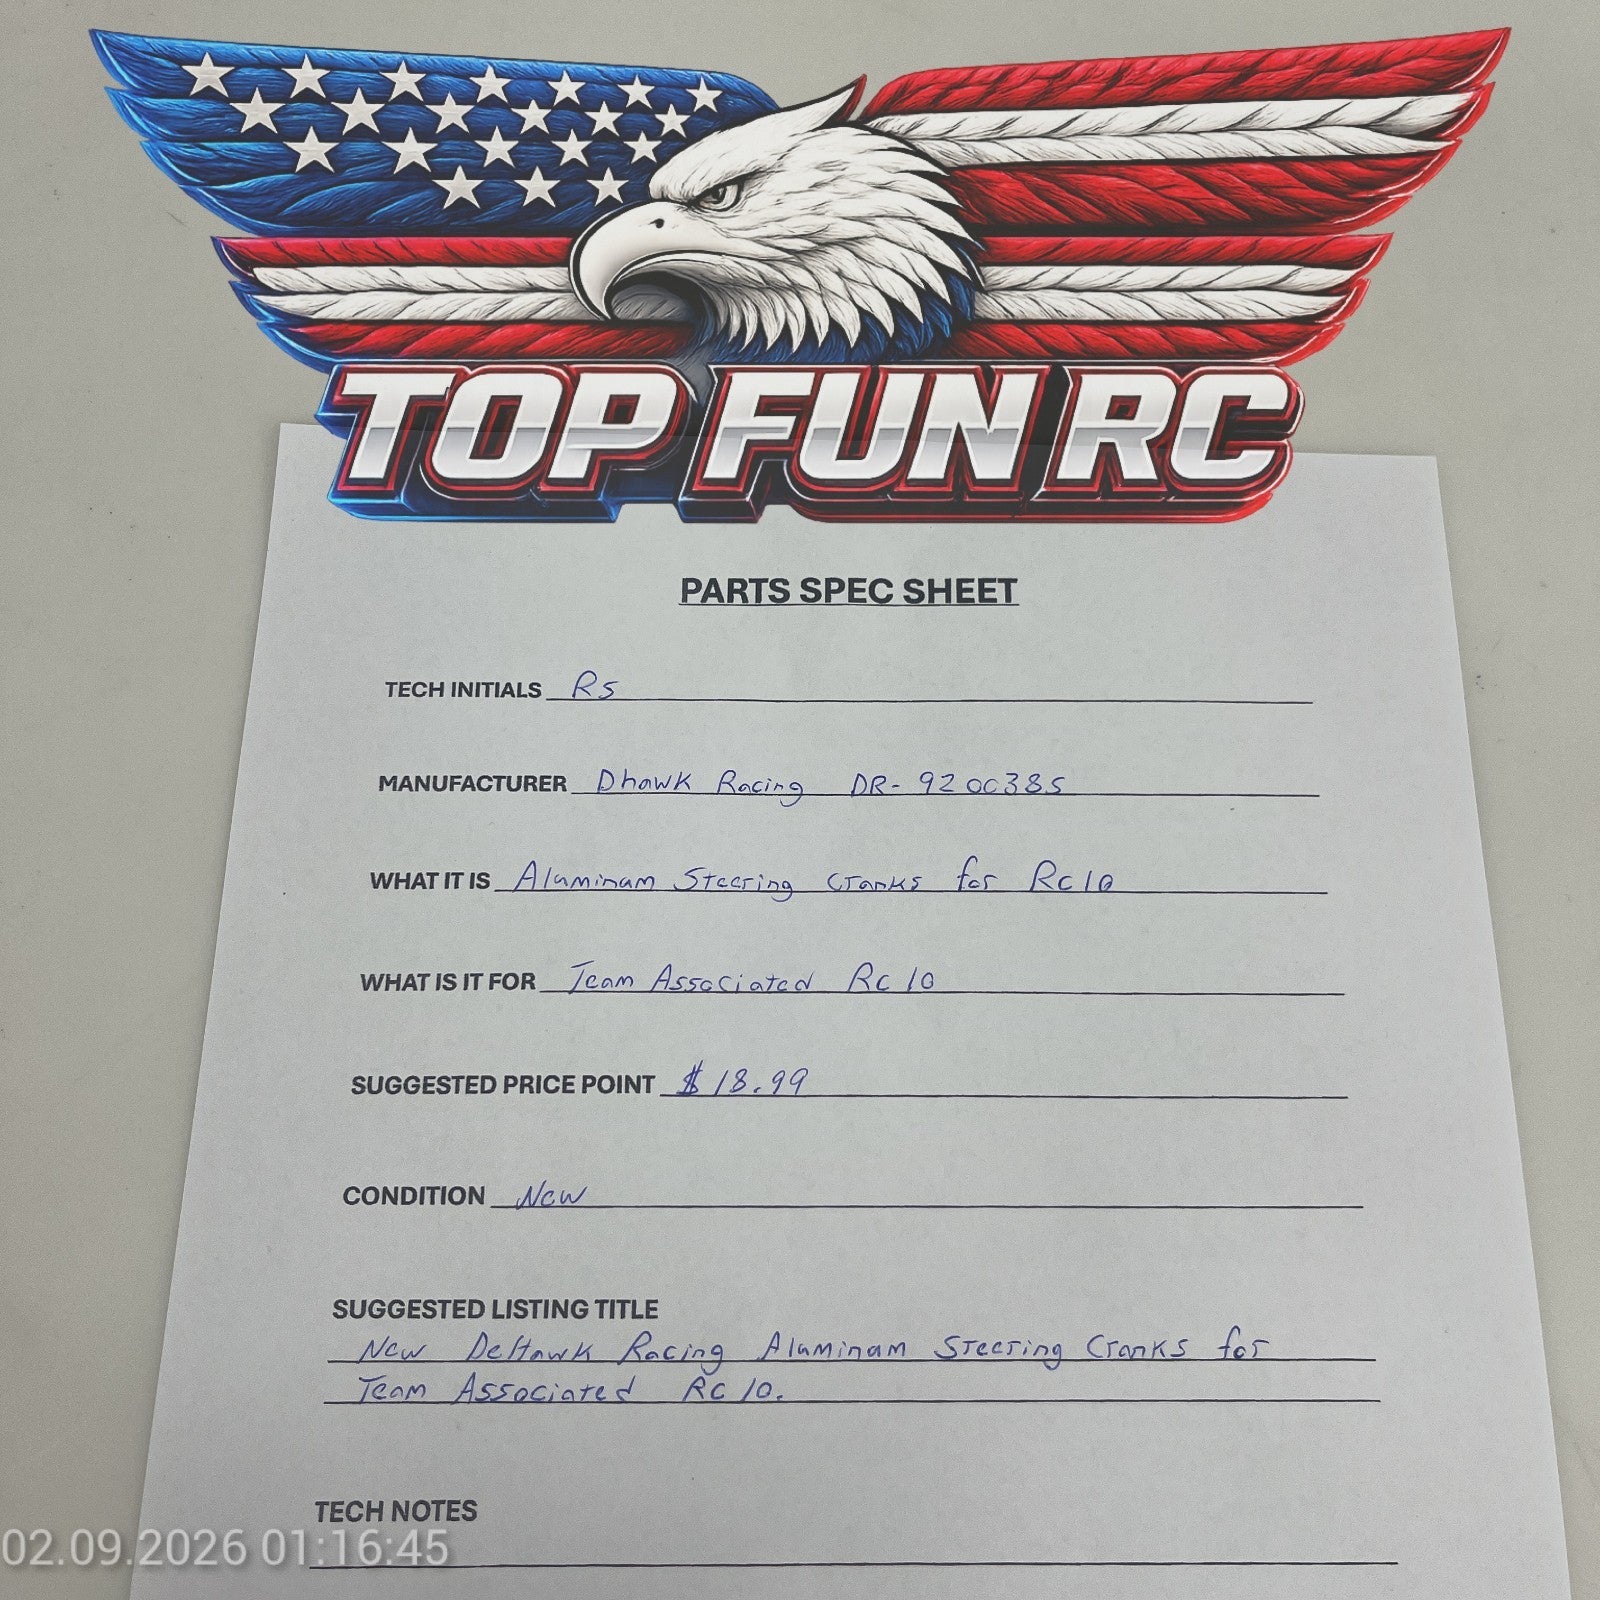 TOP FUN RC
PARTS SPEC SHEET
TECH INITIALS RS
MANUFACTURER Dhawk Racing DR-920C38S
WHAT IT IS Aluminam Steering Cranks for RC10
WHAT IS IT FOR Team Associated RC10
SUGGESTED PRICE POINT $18.99
CONDITION New
SUGGESTED LISTING TITLE
New DeHawk Racing Aluminam Steering Cranks for
Team Associated RC10.
TECH NOTES
02.09.2026 01:16:45